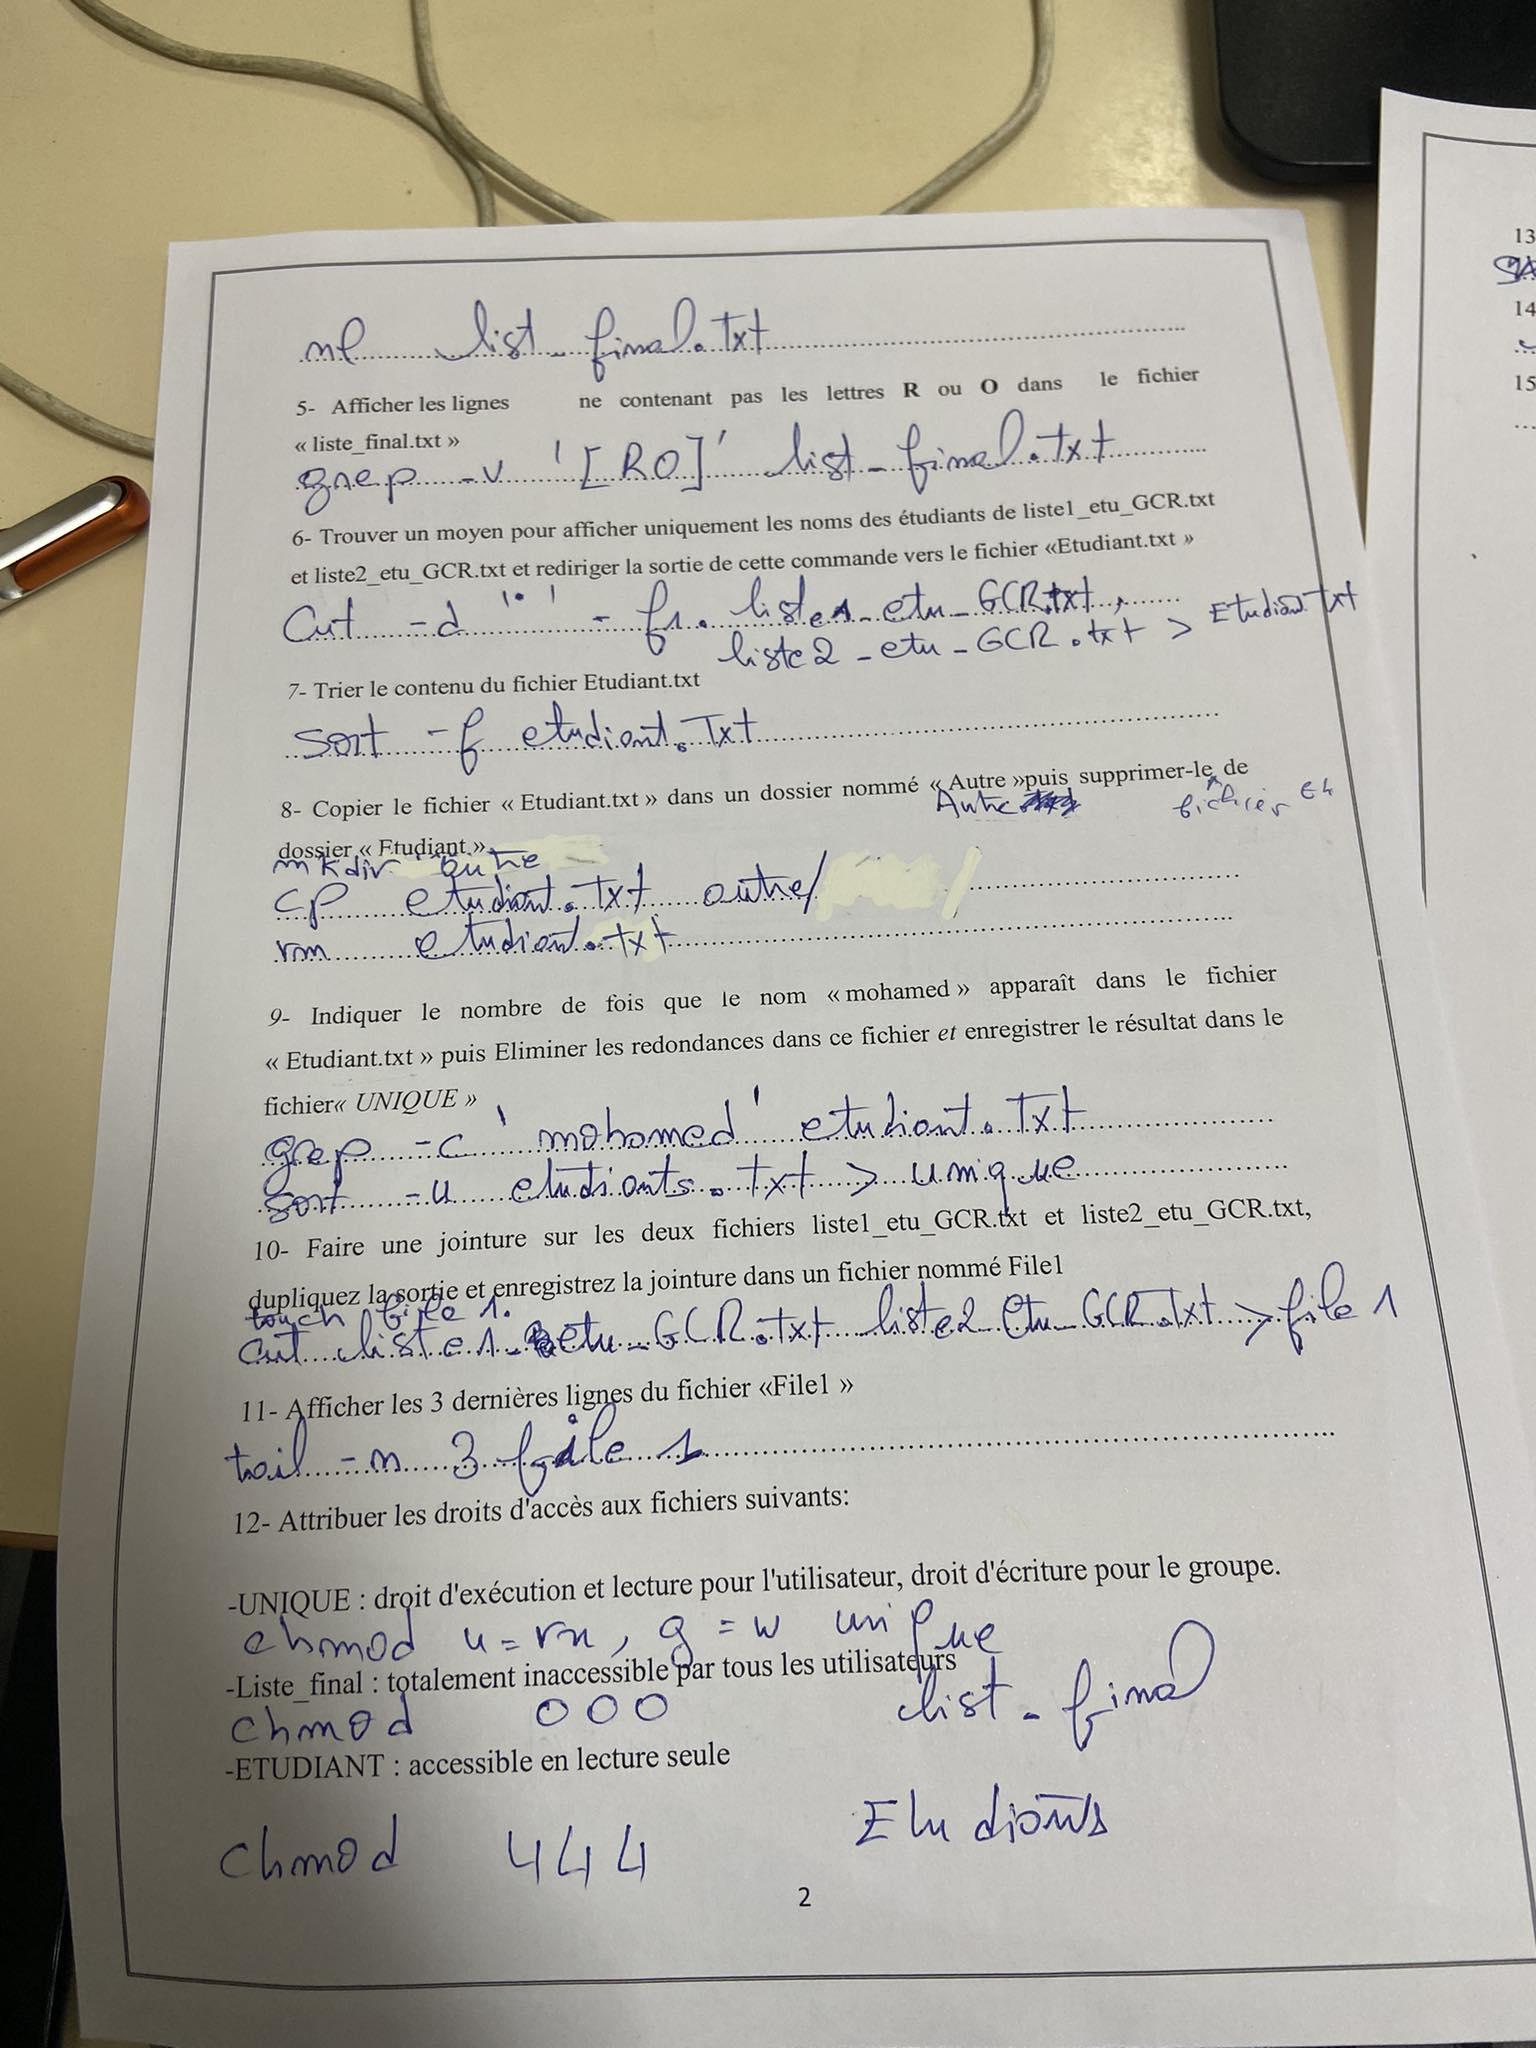 nl list_final.txt
5- Afficher les lignes ne contenant pas les lettres R ou O dans le fichier
« liste_final.txt »
grep -v '[RO]' list_final.txt
6- Trouver un moyen pour afficher uniquement les noms des étudiants de liste1_etu_GCR.txt
et liste2_etu_GCR.txt et rediriger la sortie de cette commande vers le fichier «Etudiant.txt »
Cut -d ':' -f1 liste1_etu_GCR.txt,
liste2_etu_GCR.txt > Etudian.txt
7- Trier le contenu du fichier Etudiant.txt
sort -f etudiant.Txt
8- Copier le fichier « Etudiant.txt » dans un dossier nommé « Autre »puis supprimer-le de
Autre fichier
dossier « Etudiant ».
mkdir autre
cp etudiant.txt autre/
rm etudiant.txt
9- Indiquer le nombre de fois que le nom « mohamed » apparaît dans le fichier
« Etudiant.txt » puis Eliminer les redondances dans ce fichier et enregistrer le résultat dans le
fichier« UNIQUE »
grep -c 'mohamed' etudiant.Txt
sort -u etudiants.txt > unique
10- Faire une jointure sur les deux fichiers liste1_etu_GCR.txt et liste2_etu_GCR.txt,
dupliquez la sortie et enregistrez la jointure dans un fichier nommé File1
touch file 1.
cut liste1_etu_GCR.txt liste2_etu_GCR.txt > file 1
11- Afficher les 3 dernières lignes du fichier «File1 »
tail -n 3 file 1
12- Attribuer les droits d'accès aux fichiers suivants:
-UNIQUE : droit d'exécution et lecture pour l'utilisateur, droit d'écriture pour le groupe.
chmod u=rx, g=w unique
-Liste_final : totalement inaccessible par tous les utilisateurs
chmod 000 list_final
-ETUDIANT : accessible en lecture seule
Chmod 444 Etudiants
2
13
14
15